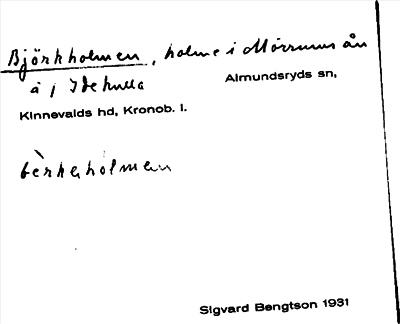 Björkholmen, holme i Mörrumsån
å, Idekulla Almundsryds sn,
Kinnevalds hd, Kronob. l.
bèrkahólmen
Sigvard Bengtson 1931